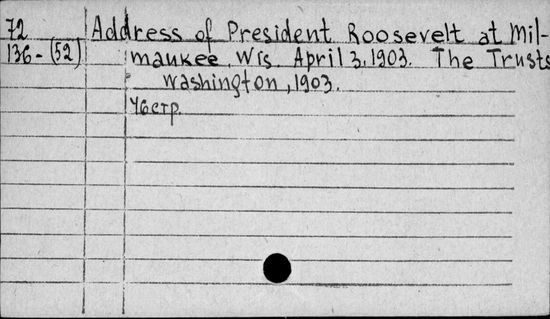 72 Address of President Roosevelt at Mil-
136-(52) maukee, Wis. April 3, 1903. The Trusts
Washington, 1903.
46стр.